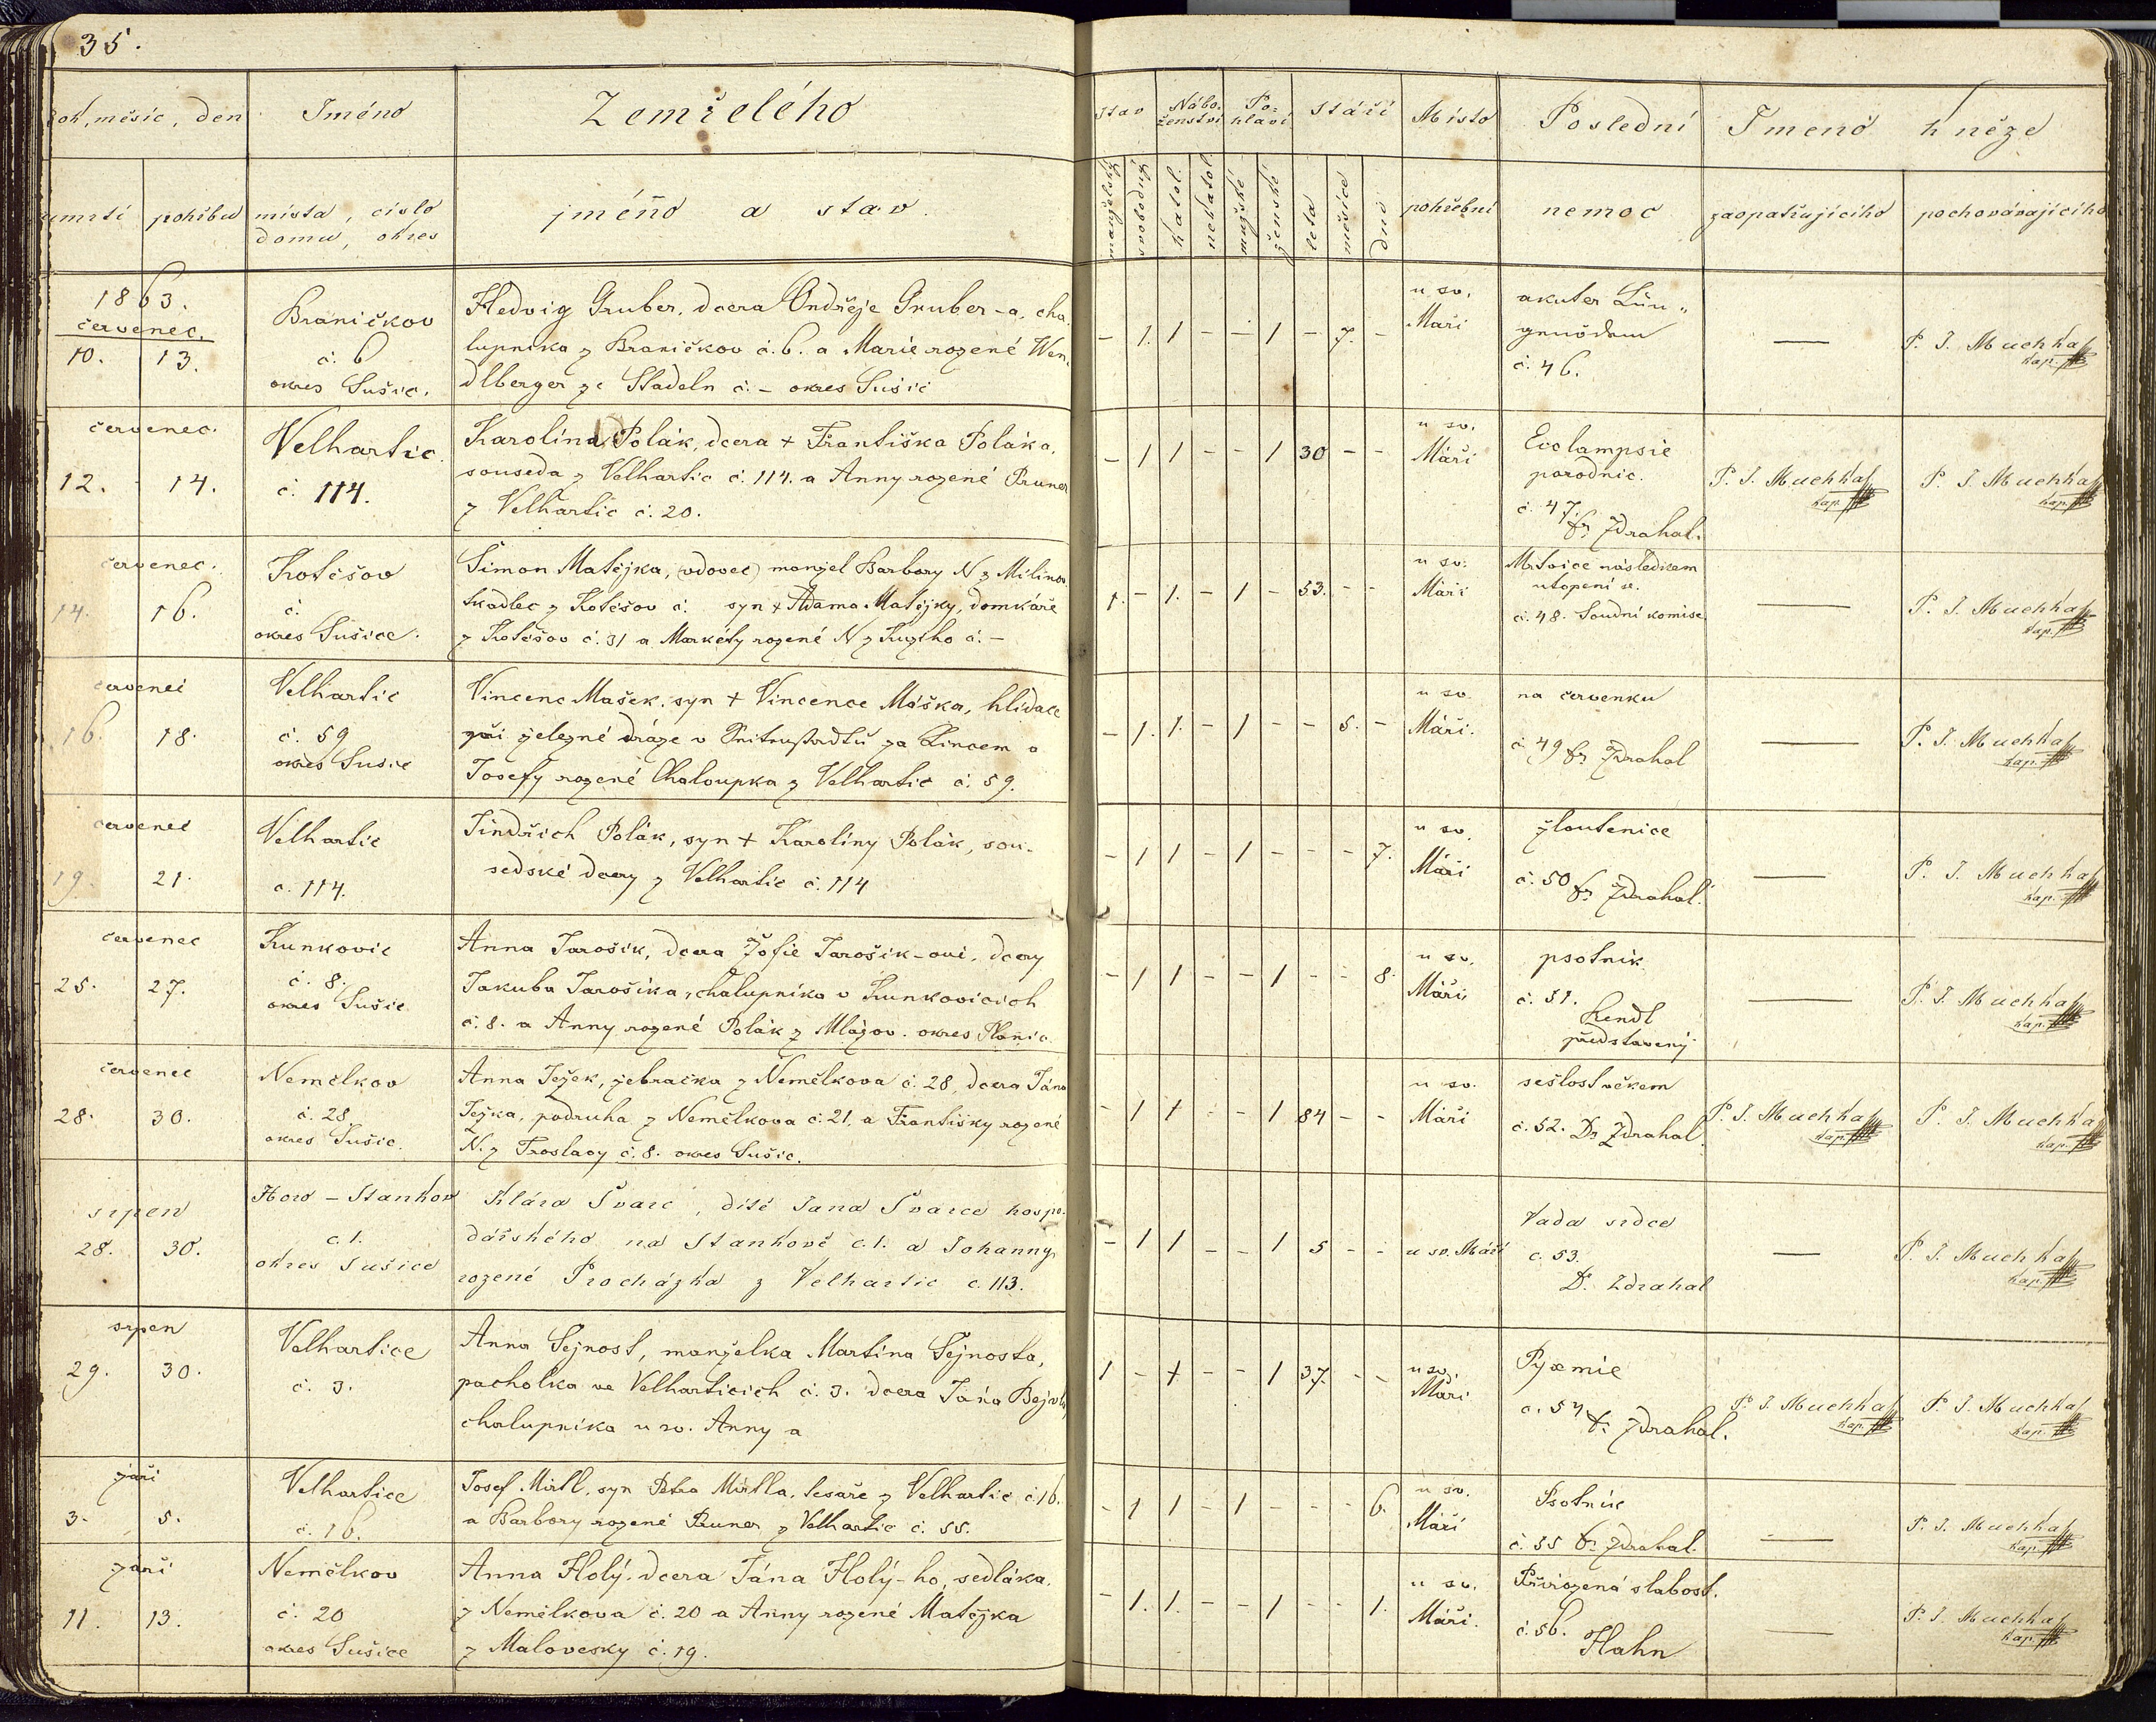 35.
Rok, měsíc, den
Jméno
Zemřelého
Stav
Nábo-
ženství
Po-
hlaví
Stáří
Místo
Poslední
Jmenó
kněze
umrtí
pohřbu
místa, číslo
domu, okres
jméno a stav.
manželský
svobodný
katol.
nekatol.
mužské
ženské
léta
měsíce
dné
pohřební
nemoc
zaopatřujícího
pochovávajícího
1863.
červenec.
10. 13.
Braničkov
č. 6
okres Sušic.
Hedvig Gruber, dcera Ondřeje Gruber-a, cha-
lupníka z Braničkov č. 6. a Marie rozené Wen-
dlberger ze Stadeln č. – okres Sušic
– 1. 1 – – 1 – 7. –
u sv.
Maří
akuter Lun-
č. 46.
—
P. J. Muchka
kap.
červenec.
12. 14.
Velhartic
č. 114.
Karolina Polák, dcera + Františka Poláka,
souseda z Velhartic č. 114. a Anny rozené Pruner
z Velhartic č. 20.
– 1 1 – – 1 30 – –
u sv.
Máří
Ecclampsie
porodnic.
č. 47.
Dr Zdrahal.
P. J. Muchka
kap.
P. J. Muchka
kap.
červenec.
14. 16.
Kotěšov
č.
okres Sušice.
Šimon Matějka, (vdovec) manžel Barbory N z Milínov
tkadlec z Kotěšov č. syn + Adama Matějky, domkáře
z Kotěšov č. 31 a Markéty rozené N z č. –
1. – 1. – 1 – 53. – –
u sv.
Máří
Mrtvice následkem
utopení se.
č. 48. Soudní komise
—
P. J. Muchka
kap.
červenec
16. 18.
Velhartic
č. 59
okres Sušic
Vincenc Mašek, syn + Vincence Máška, hlídače
při železné dráze v za Lincem a
Josefy rozené Chaloupka z Velhartic č. 59.
– 1. 1. – 1 – – 5. –
u sv.
Máří.
na červenku
č. 49 Dr Zdrahal
—
P. J. Muchka
kap.
červenec
19. 21.
Velhartic
č. 114.
Jindřich Polák, syn + Karolíny Polák, sou-
sedské dcery z Velhartic č. 114
– 1 1 – 1 – – – 7.
u sv.
Máří
žloutenice
č. 50 Dr Zdrahal.
—
P. J. Muchka
kap.
červenec
25. 27.
Kunkovic
č. 8.
okres Sušic.
Anna Jarošík, dcera Žofie Jarošík-ovi, dcery
Jakuba Jarošíka, chalupníka v Kunkovicích
č. 8. a Anny rozené Polák z Mlázov. okres Planic.
– 1 1 – – 1 – – 8.
u sv.
Máří
psotník
č. 51.
Kendl
představený.
—
P. J. Muchka
kap.
červenec
28. 30.
Nemělkov
č. 28
okres Sušic.
Anna Ježek, žebračka z Nemělkova č. 28, dcera Jána
Ježka, podruha z Nemělkova č. 21. a Františky rozené
N. z č. 8. okres Sušic.
– 1 1 – – 1 84 – –
u sv.
Máří
sešlost věkem
č. 52. Dr Zdrahal.
P. J. Muchka
kap.
P. J. Muchka
kap.
srpen
28. 30.
Horo – Stankov
č. 1.
okres Sušice
Klára Švarc, dítě Jana Švarce hospo-
dářského na Stankově č. 1. a Johanny
rozené Procházka z Velhartic č. 113.
– 1 1 – – 1 5 – –
u sv. Máří
Vada srdce
č. 53.
Dr. Zdrahal
—
P. J. Muchka
kap.
srpen
29. 30.
Velhartice
č. 3.
Anna Šejnost, manželka Martina Šejnosta,
pacholka ve Velharticích č. 3. dcera Jána
chalupníka u sv. Anny a
1 – 1 – – 1 37. – –
u sv.
Máří
Pyæmie
č. 54
Dr Zdrahal.
P. J. Muchka
kap.
P. J. Muchka
kap.
září
3. 5.
Velhartice
č. 16.
Josef Mirtl, syn Petra Mirtla, tesaře z Velhartic č. 16.
a Barbory rozené Pruner z Velhartic č. 55.
– 1 1 – 1 – – – 6.
u sv.
Máří
Psotník
č. 55 Dr Zdrahal.
—
P. J. Muchka
kap.
září
11. 13.
Nemělkov
č. 20
okres Sušice
Anna Holý, dcera Jána Holý-ho, sedláka,
z Nemělkova č. 20 a Anny rozené Matějka
z Malovesky č. 19.
– 1. 1. – – 1 – – 1.
u sv.
Máří.
Přirozená slabost.
č. 56.
Hahn
—
P. J. Muchka
kap.